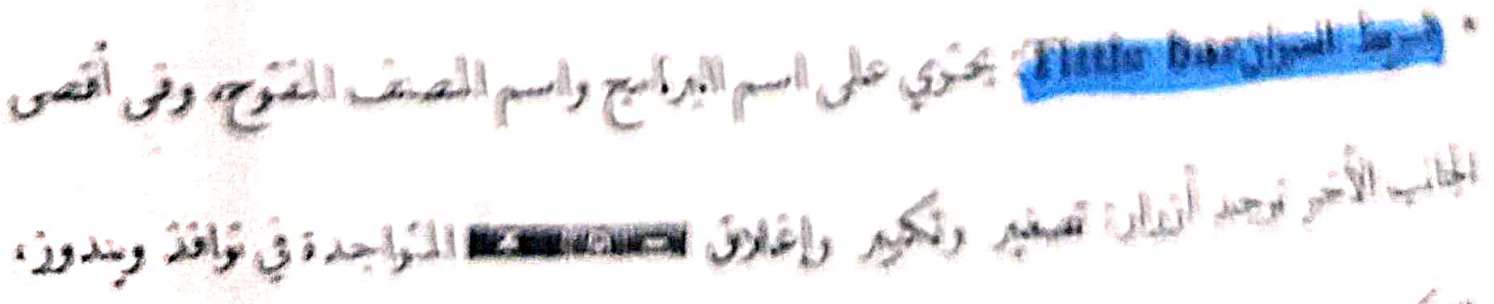 • شريط العنوان Tittle Bar: يحتوي على اسم البرنامج واسم المصنف المفتوح، وفي أقصى
الجانب الأخر توجد أزرار: تصغير وتكبير وإغلاق المتواجدة في نوافذ ويندوز،